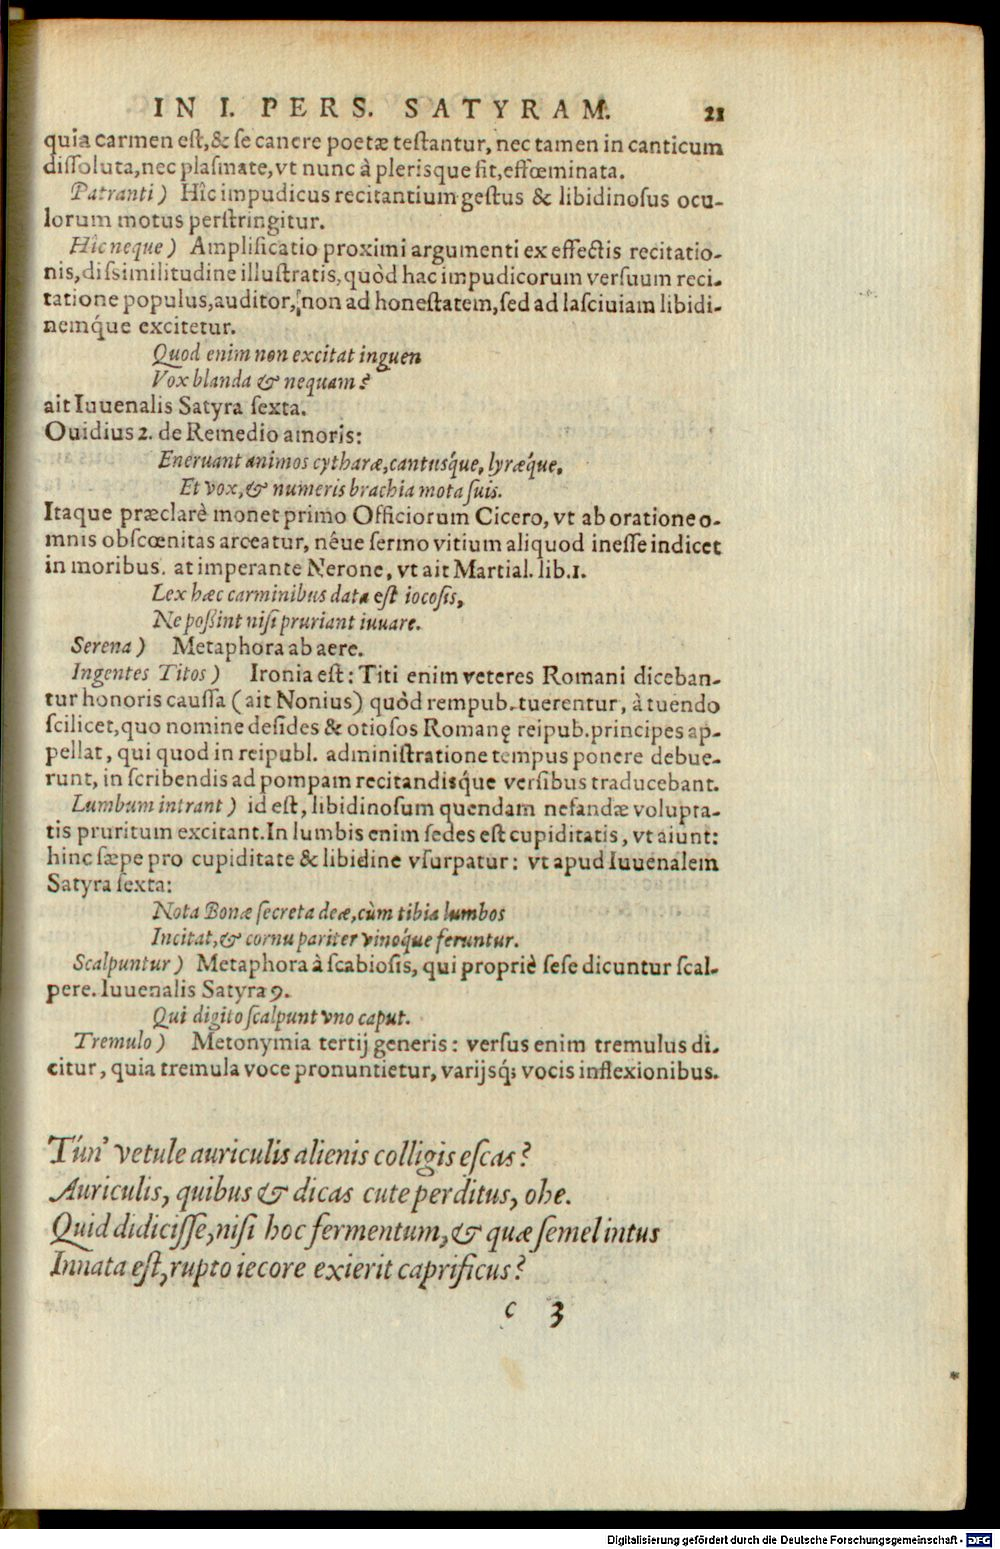 IN I. PERS. SATYRAM. 21
quia carmen est,& se canere poetæ testantur, nec tamen in canticum
dissoluta,nec plasmate,vt nunc à plerisque fit,effœminata.
Patranti) Hîc impudicus recitantium gestus & libidinosus ocu-
lorum motus perstringitur.
Hîc neque) Amplificatio proximi argumenti ex effectis recitatio-
nis,dissimilitudine illustratis,quòd hac impudicorum versuum reci-
tatione populus,auditor, non ad honestatem,sed ad lasciuiam libidi-
nemq́ue excitetur.
Quod enim non excitat inguen
Vox blanda & nequam?
ait Iuuenalis Satyra sexta.
Ouidius 2. de Remedio amoris:
Eneruant animos cytharæ,cantusq́ue, lyræq́ue,
Et vox,& numeris brachia mota suis.
Itaque præclarè monet primo Officiorum Cicero, vt ab oratione o-
mnis obscœnitas arceatur, nêue sermo vitium aliquod inesse indicet
in moribus. at imperante Nerone, vt ait Martial. lib.1.
Lex hæc carminibus data est iocosis,
Ne possint nisi pruriant iuuare.
Serena) Metaphora ab aere.
Ingentes Titos) Ironia est: Titi enim veteres Romani diceban-
tur honoris caussa (ait Nonius) quòd rempub. tuerentur, à tuendo
scilicet,quo nomine desides & otiosos Romanę reipub.principes ap-
pellat, qui quod in reipubl. administratione tempus ponere debue-
runt, in scribendis ad pompam recitandisq́ue versibus traducebant.
Lumbum intrant) id est, libidinosum quendam nefandæ volupta-
tis pruritum excitant.In lumbis enim sedes est cupiditatis, vt aiunt:
hinc sæpe pro cupiditate & libidine vsurpatur: vt apud Iuuenalem
Satyra sexta:
Nota Bonæ secreta deæ,cùm tibia lumbos
Incitat,& cornu pariter vinoq́ue feruntur.
Scalpuntur) Metaphora à scabiosis, qui propriè sese dicuntur scal-
pere. Iuuenalis Satyra 9.
Qui digito scalpunt vno caput.
Tremulo) Metonymia tertij generis: versus enim tremulus di-
citur, quia tremula voce pronuntietur, varijsq́; vocis inflexionibus.
Tún' vetule auriculis alienis colligis escas?
Auriculis, quibus & dicas cute perditus, ohe.
Quid didicisse,nisi hoc fermentum,& quæ semel intus
Innata est,rupto iecore exierit caprificus?
c 3
Digitalisierung gefördert durch die Deutsche Forschungsgemeinschaft - DFG